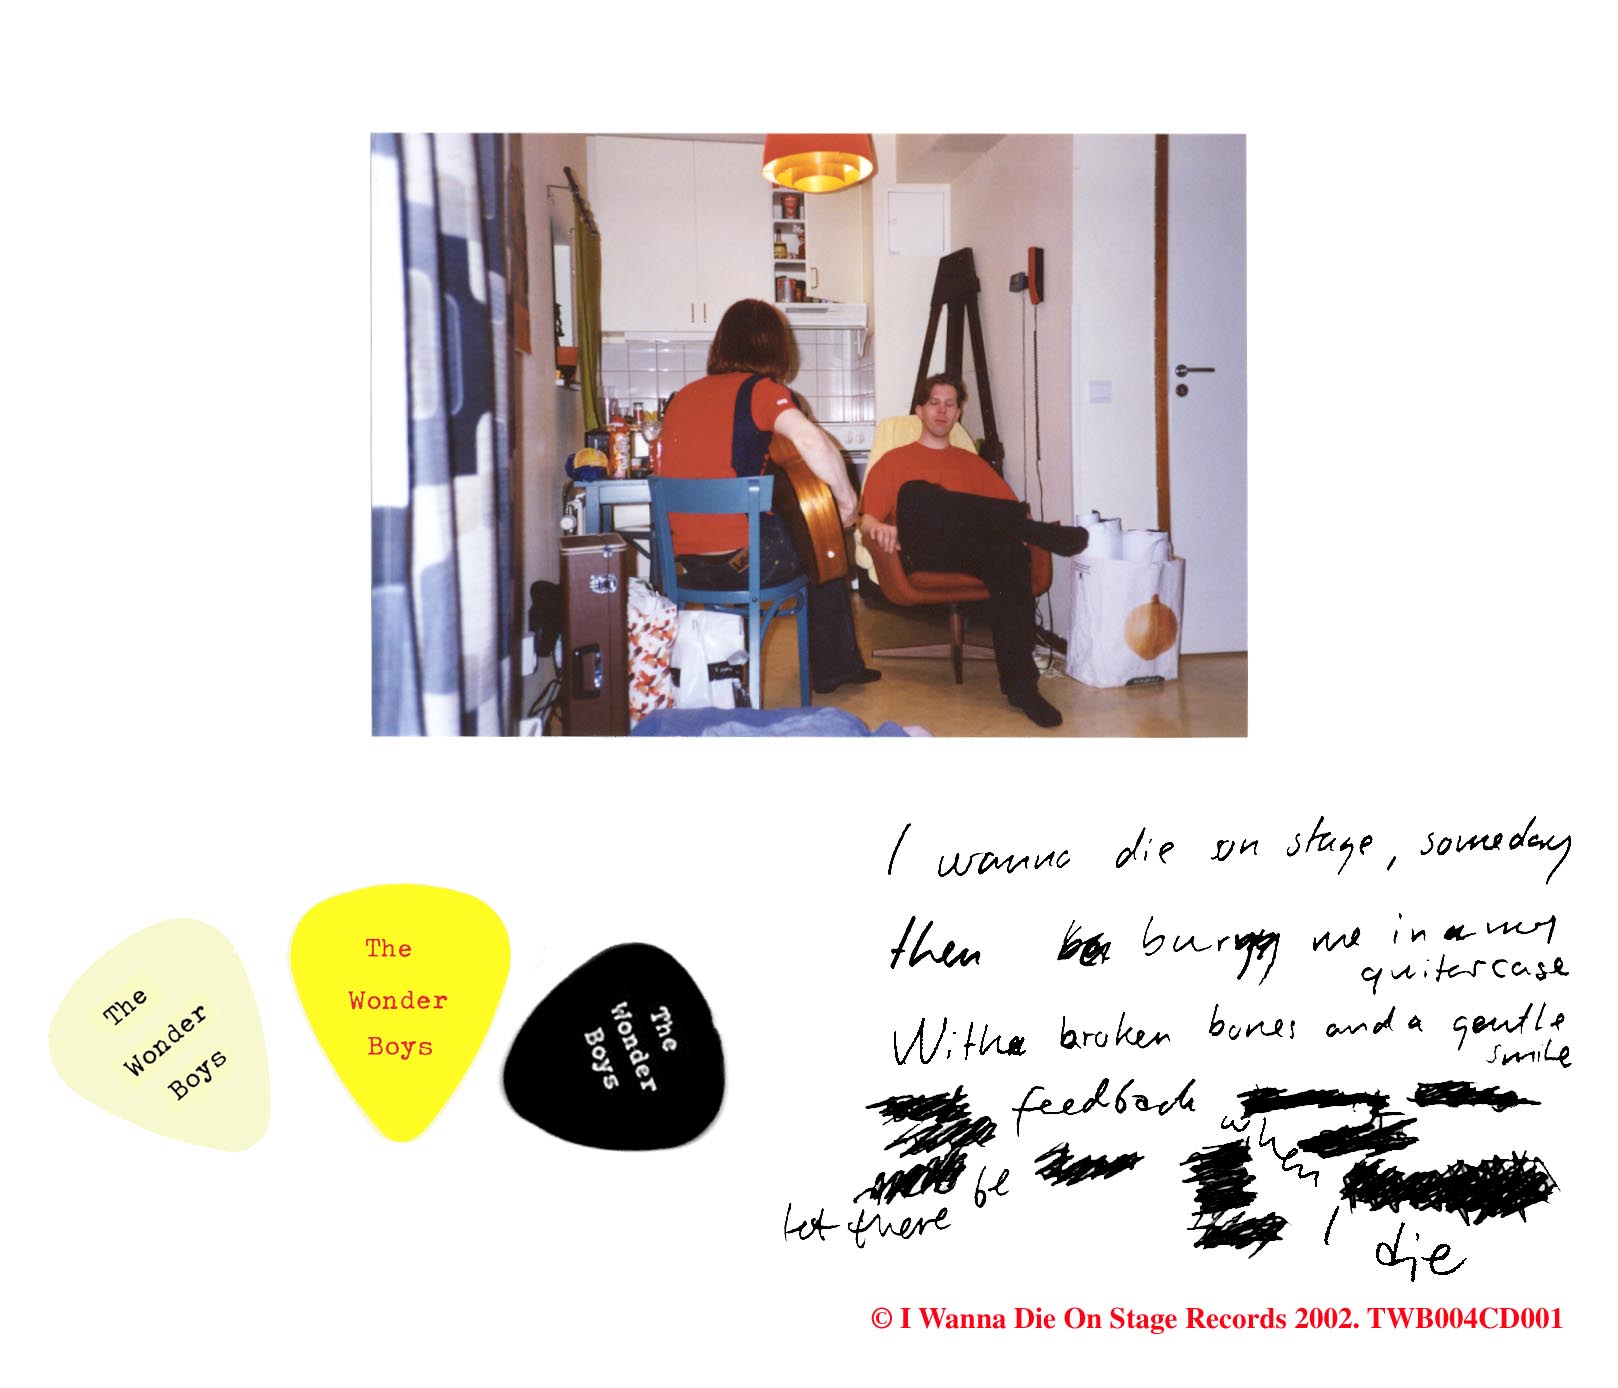 The
Wonder
Boys
The
Wonder
Boys
The
Wonder
Boys
I wanna die on stage, someday
then burn me in a my
guitarcase
With broken bones and a gentle
smile
feedback
when
be
let there
I
die
© I Wanna Die On Stage Records 2002. TWB004CD001